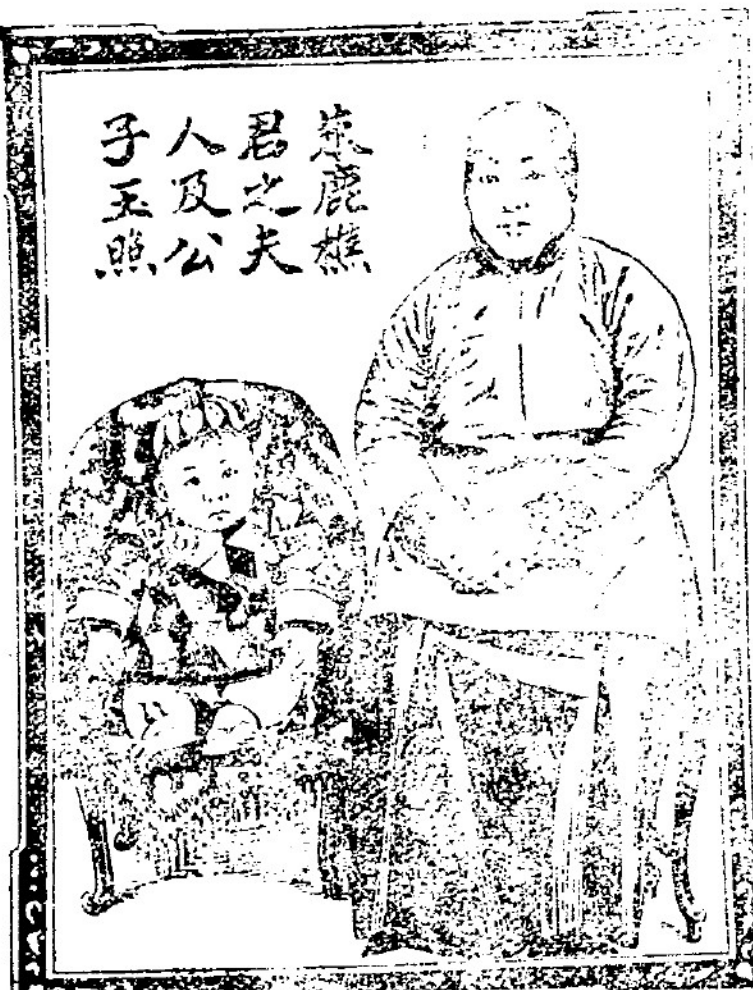 朱鹿樵
君之夫
人及公
子玉照